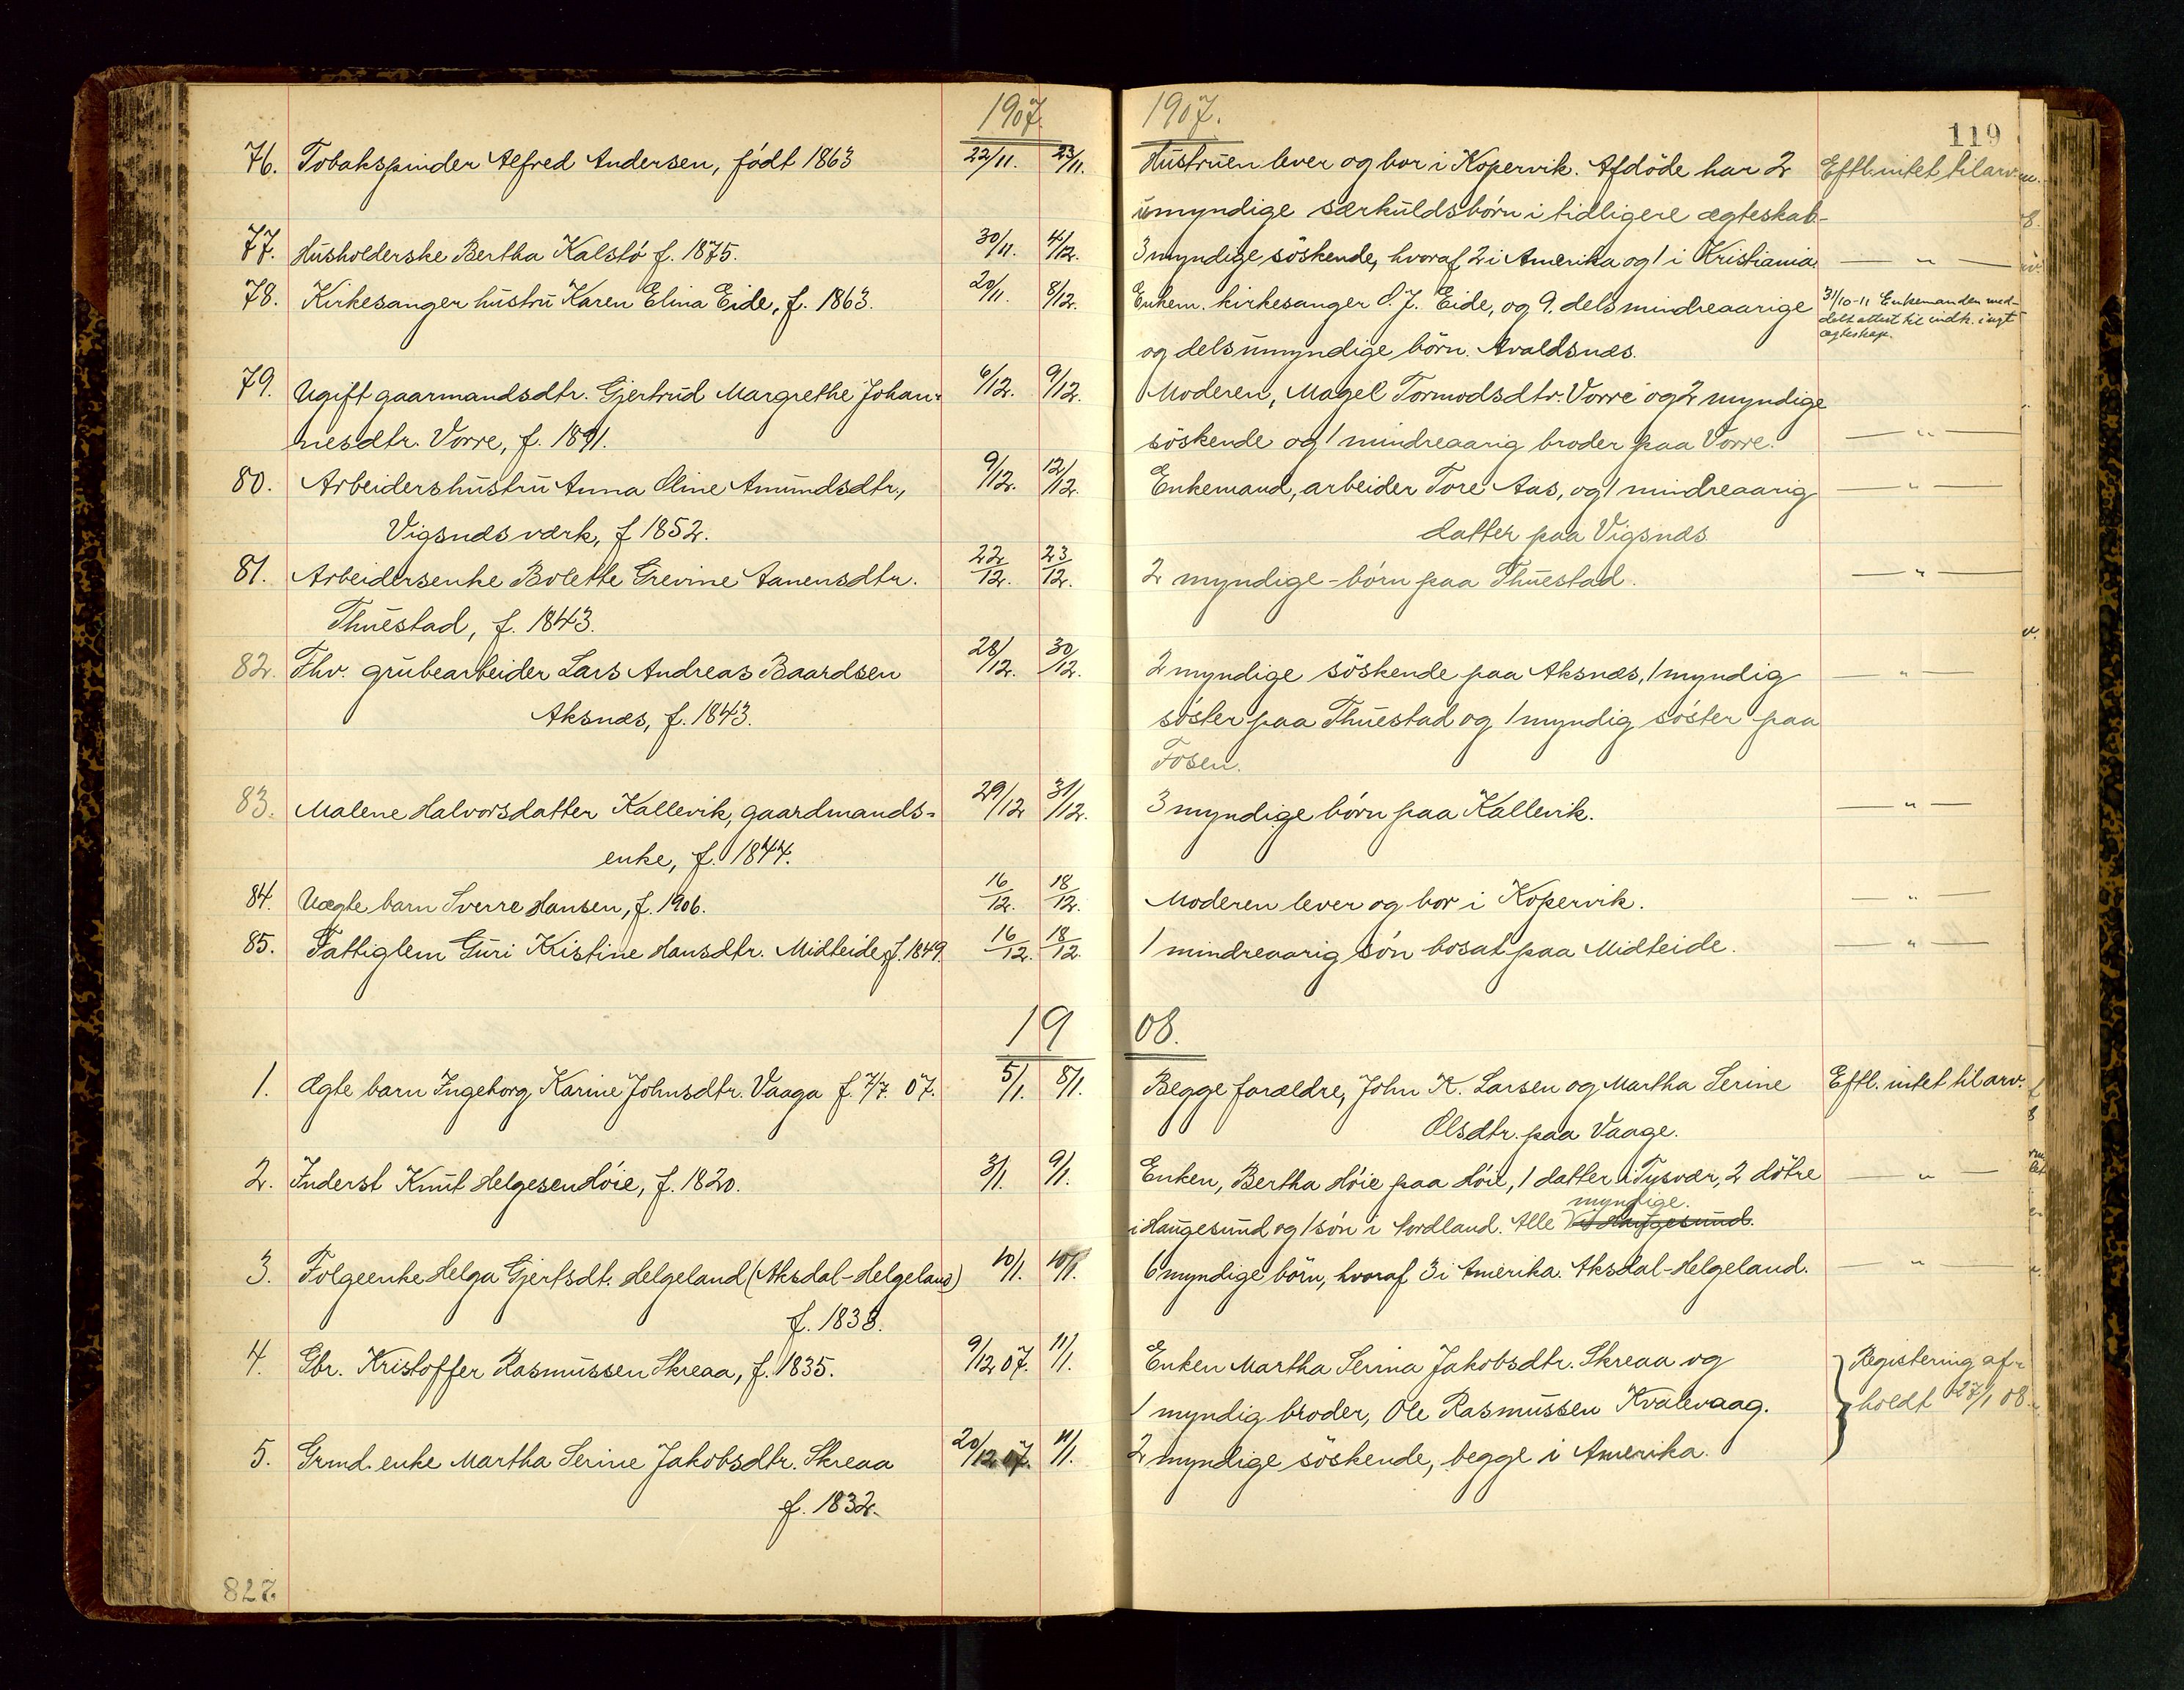 1907.
76. Tobakspinder Alfred Andersen, født 1863 22/11. 23/11.
77. Husholderske Bertha Kalstø f. 1875. 30/11. 4/12.
78. Kirkesanger hustru Karen Elina Eide, f. 1863. 20/11. 8/12.
79. Ugift gaarmandsdtr. Gjertrud Margrethe Johan- 6/12. 9/12.
nesdtr. Vorre, f. 1891.
80. Arbeidershustru Anna Oline Amundsdtr., 9/12. 12/12.
Vigsnæs værk, f 1852.
81. Arbeidersenke Bolette Grevine Aanensdtr. 22/12. 23/12.
Thuestad, f. 1843.
82. Fhv. grubearbeider Lars Andreas Baardsen 28/12. 30/12.
Aksnæs, f. 1843.
83. Malene Halvorsdatter Kallevik, gaardmands- 29/12 31/12.
enke, f. 1844.
84. Uægte barn Sverre Hansen, f. 1906. 16/12. 18/12.
85. Fattiglem Guri Kistine Hansdtr. Midteide, f. 1849. 16/12. 18/12.
19
1. Ægte barn Ingeborg Karine Johnsdtr. Vaaga f. 7/7. 07. 5/1. 8/1.
2. Inderst Knut Helgesen Høie, f. 1820. 3/1. 9/1.
3. Folgeenke Helga Gjertsdt. Helgeland (Aksdal-Helgeland) 10/1. 10/1.
f. 1838.
4. Gbr. Kristoffer Rasmussen Skreaa, f. 1835. 9/12 07. 11/1.
5. Grmd. enke Martha Serine Jakobsdtr. Skreaa 20/12 07. 11/1.
f. 1832.
827.
1907.
119
Hustruen lever og bor i Kopervik. Afdøde har 2 Eftl. intet til arv
umyndige særkuldsbørn i tidligere ægteskab-
3 myndige søskende, hvoraf 2 i Amerika og 1 i Kristiania. — " —
Enkem. kirkesanger O. J. Eide, og 9. dels mindreaarige 31/10-11 Enkemanden med-
delt attest til indk. i nyt
ægteskap.
og dels umyndige børn. Avaldsnæs.
Moderen, Magel Tormodsdtr. Vorre og 2 myndige
søskende og 1 mindreaarig broder paa Vorre. — " —
Enkemand, arbeider Tore Aas, og 1 mindreaarig — " —
datter paa Vigsnæs
2 myndige-børn paa Thuestad. — " —
2 myndige søskende paa Aksnæs, 1 myndig — " —
søster paa Thuestad og 1 myndig søster paa
Fosen.
3 myndige børn paa Kallevik. — " —
Moderen lever og bor i Kopervik. — " —
1 mindreaarig søn bosat paa Midteide. — " —
08.
Begge forældre, John K. Larsen og Martha Serine Eftl. intet til arv.
Olsdtr. paa Vaage.
Enken, Bertha Høie paa Høie, 1 datter i Tysvær, 2 døtre — " —
myndige.
i Haugesund og 1 søn i Nordland. Alle
6 myndige børn, hvoraf 3 i Amerika. Aksdal-Helgeland. — " —
Enken Martha Serina Jakobsdtr. Skreaa og Registering af-
1 myndig broder, Ole Rasmussen Kvalevaag. holdt 27/1 08.
2 myndige søskende, begge i Amerika.